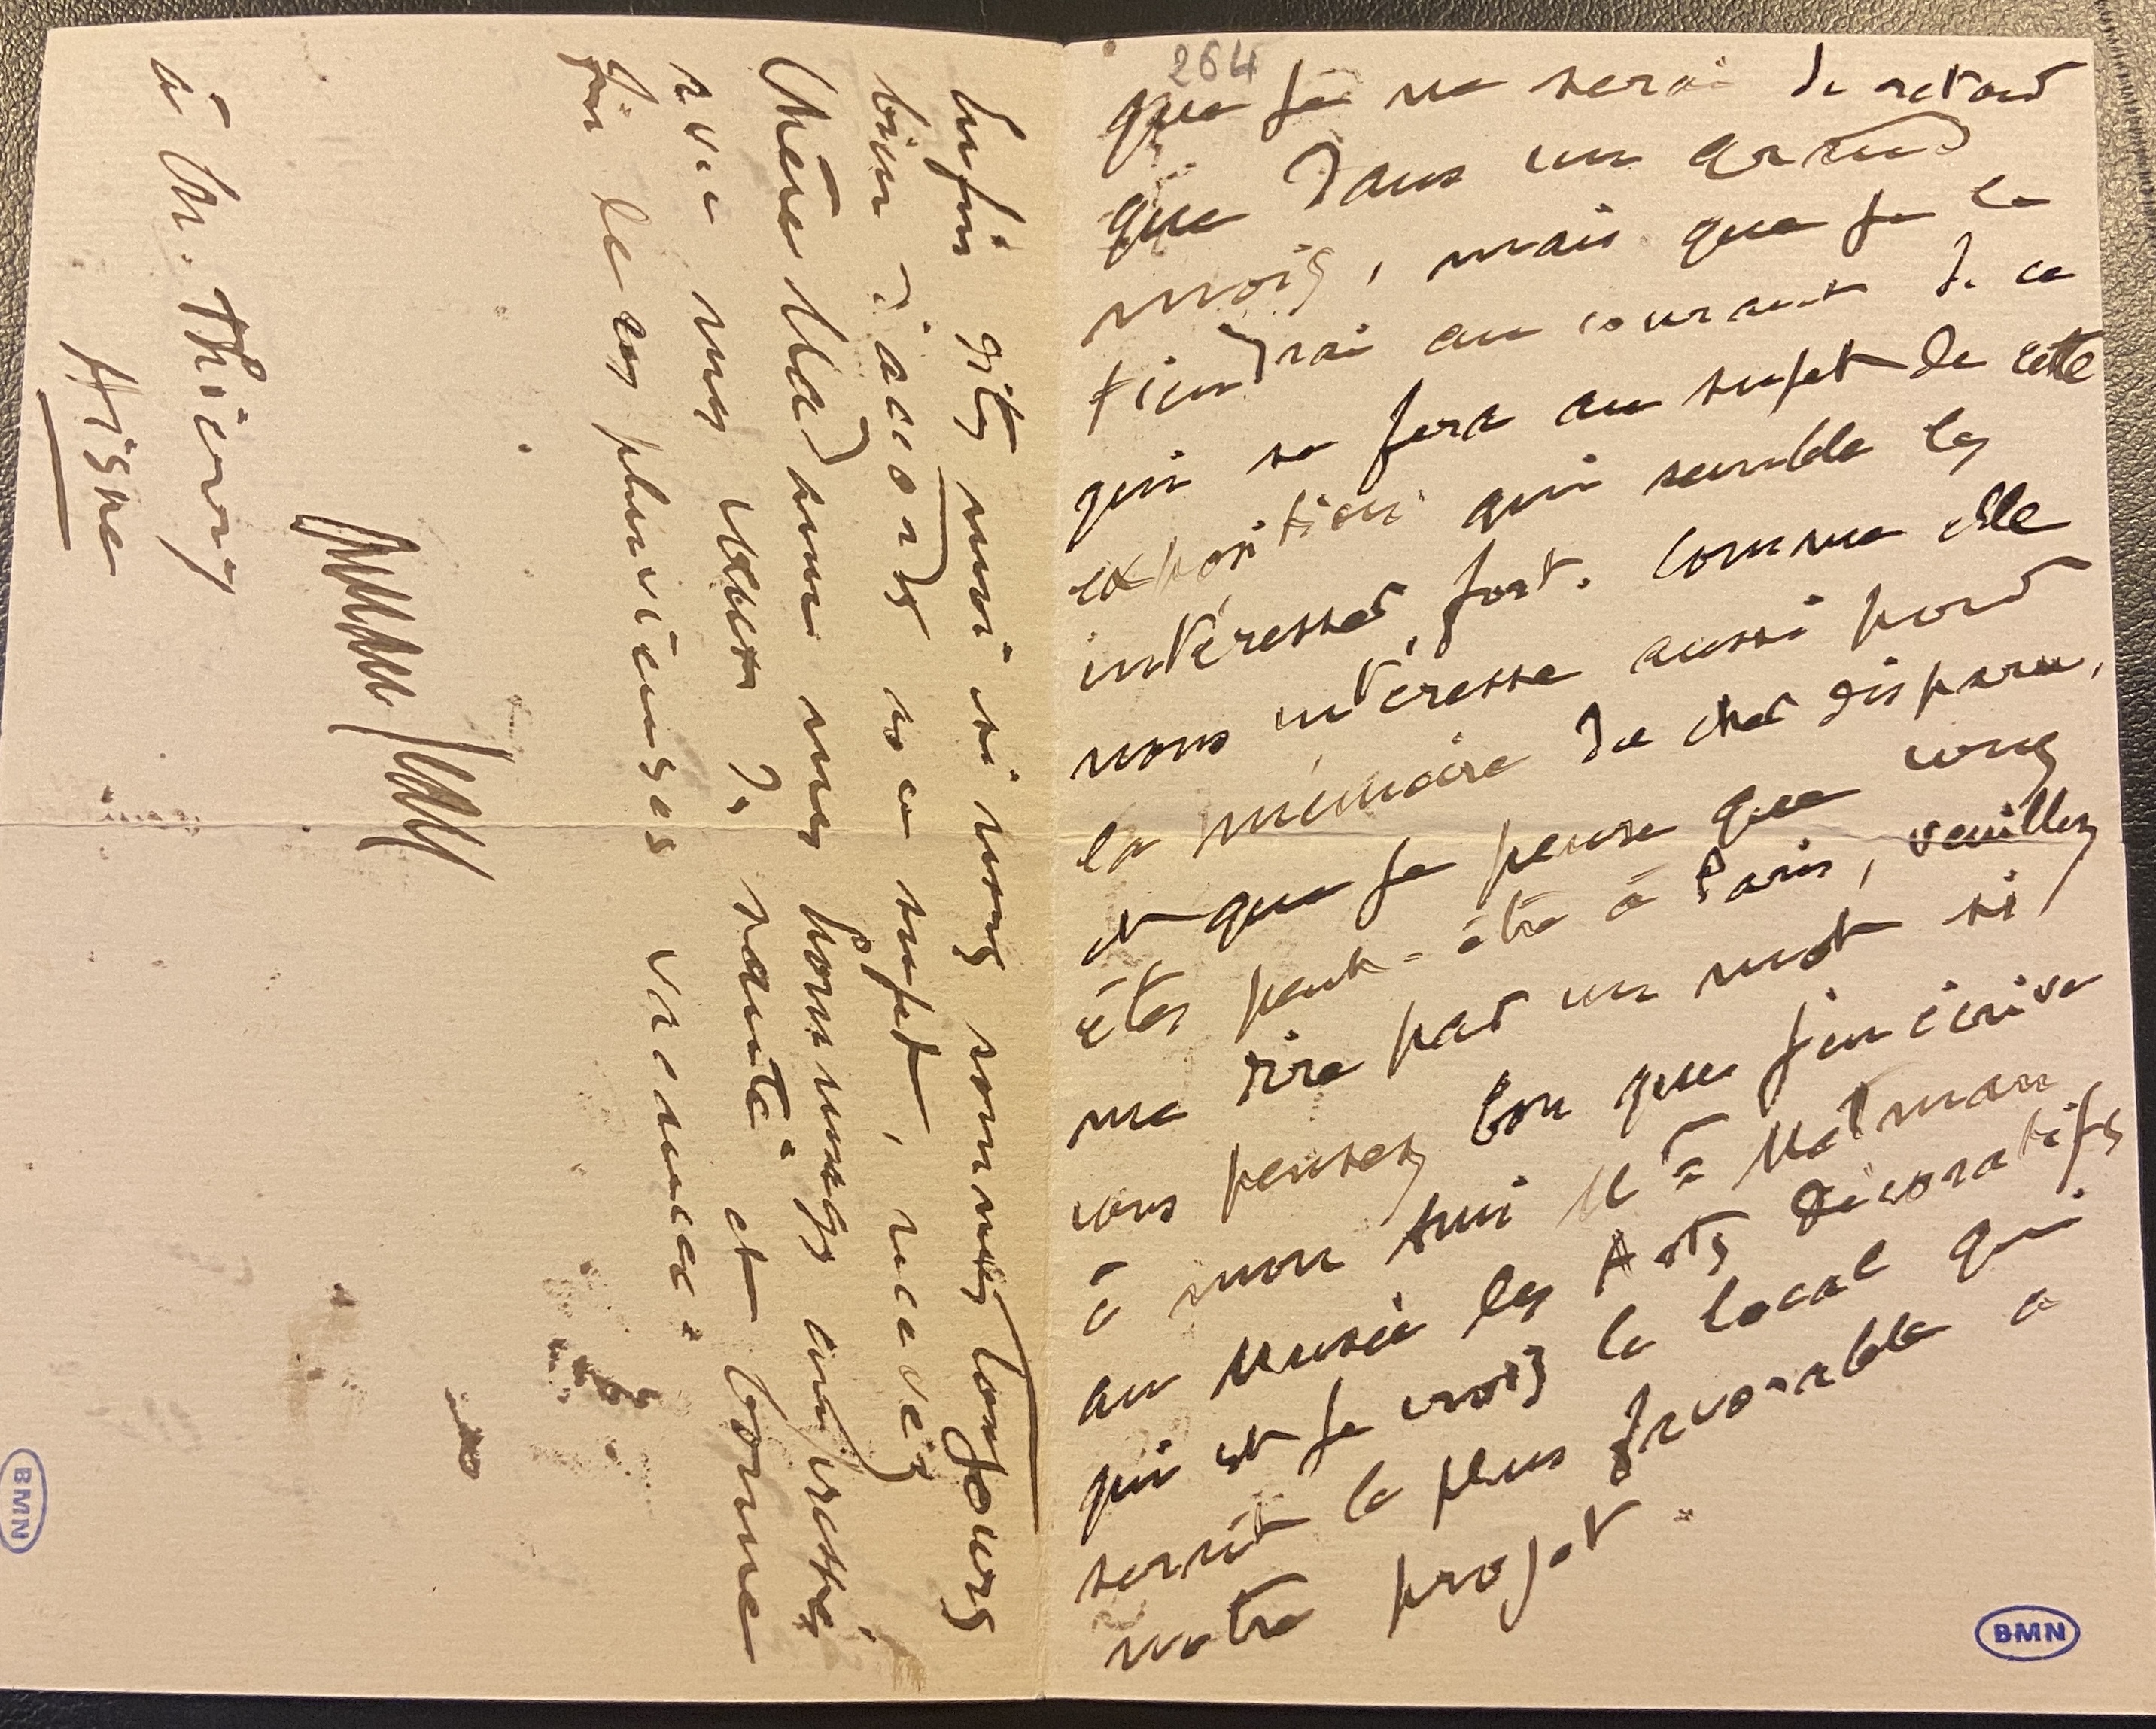 264
que je ne serai de retour
que dans un grand
mois, mais que je le
tiendrai au courant de ce
qui se fera au sujet de cette
exposition qui semble les
intéresser fort. Comme elle
nous intéresse aussi pour
la mémoire du cher disparu,
et que je pense que vous
êtes peut-être à Paris, veuillez
me dire par un mot si
vous pensez bon que j'en écrive
à mon ami Mr
au Musée des Arts Décoratifs
qui est je crois le local qui
serait le plus favorable à
notre projet.
BMN
Enfin dites moi si nous sommes toujours
bien d'accord à ce sujet, recevez
Chère Madame mes hommages empressés
avec mes vœux de santé et bonne
fin de ces pluvieuses vacances.
à St. Thierry
Aisne
BMN